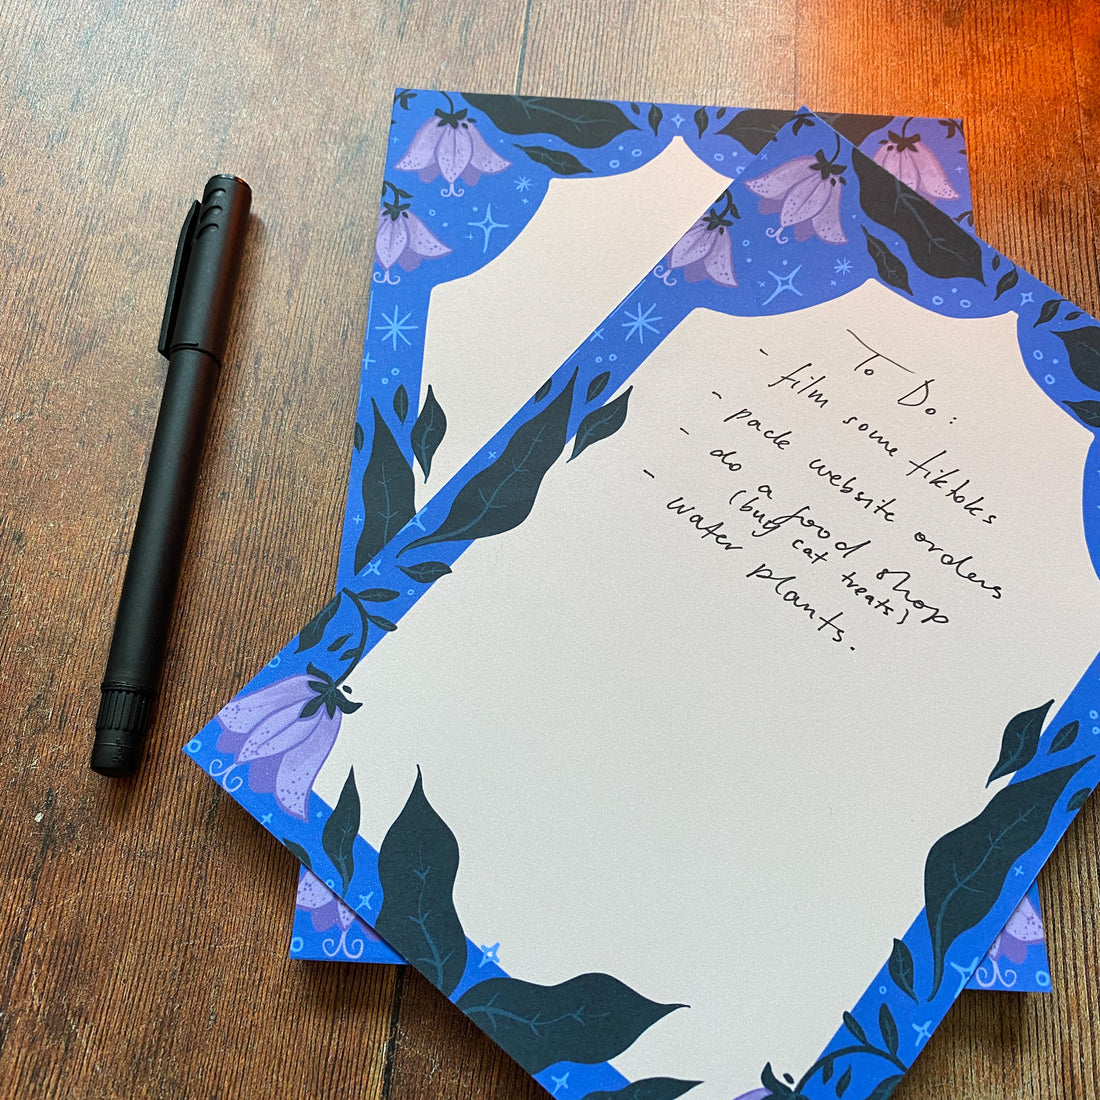 To Do:
- film some tiktoks
- pack website orders
- do a food shop
(buy cat treats)
- water plants.